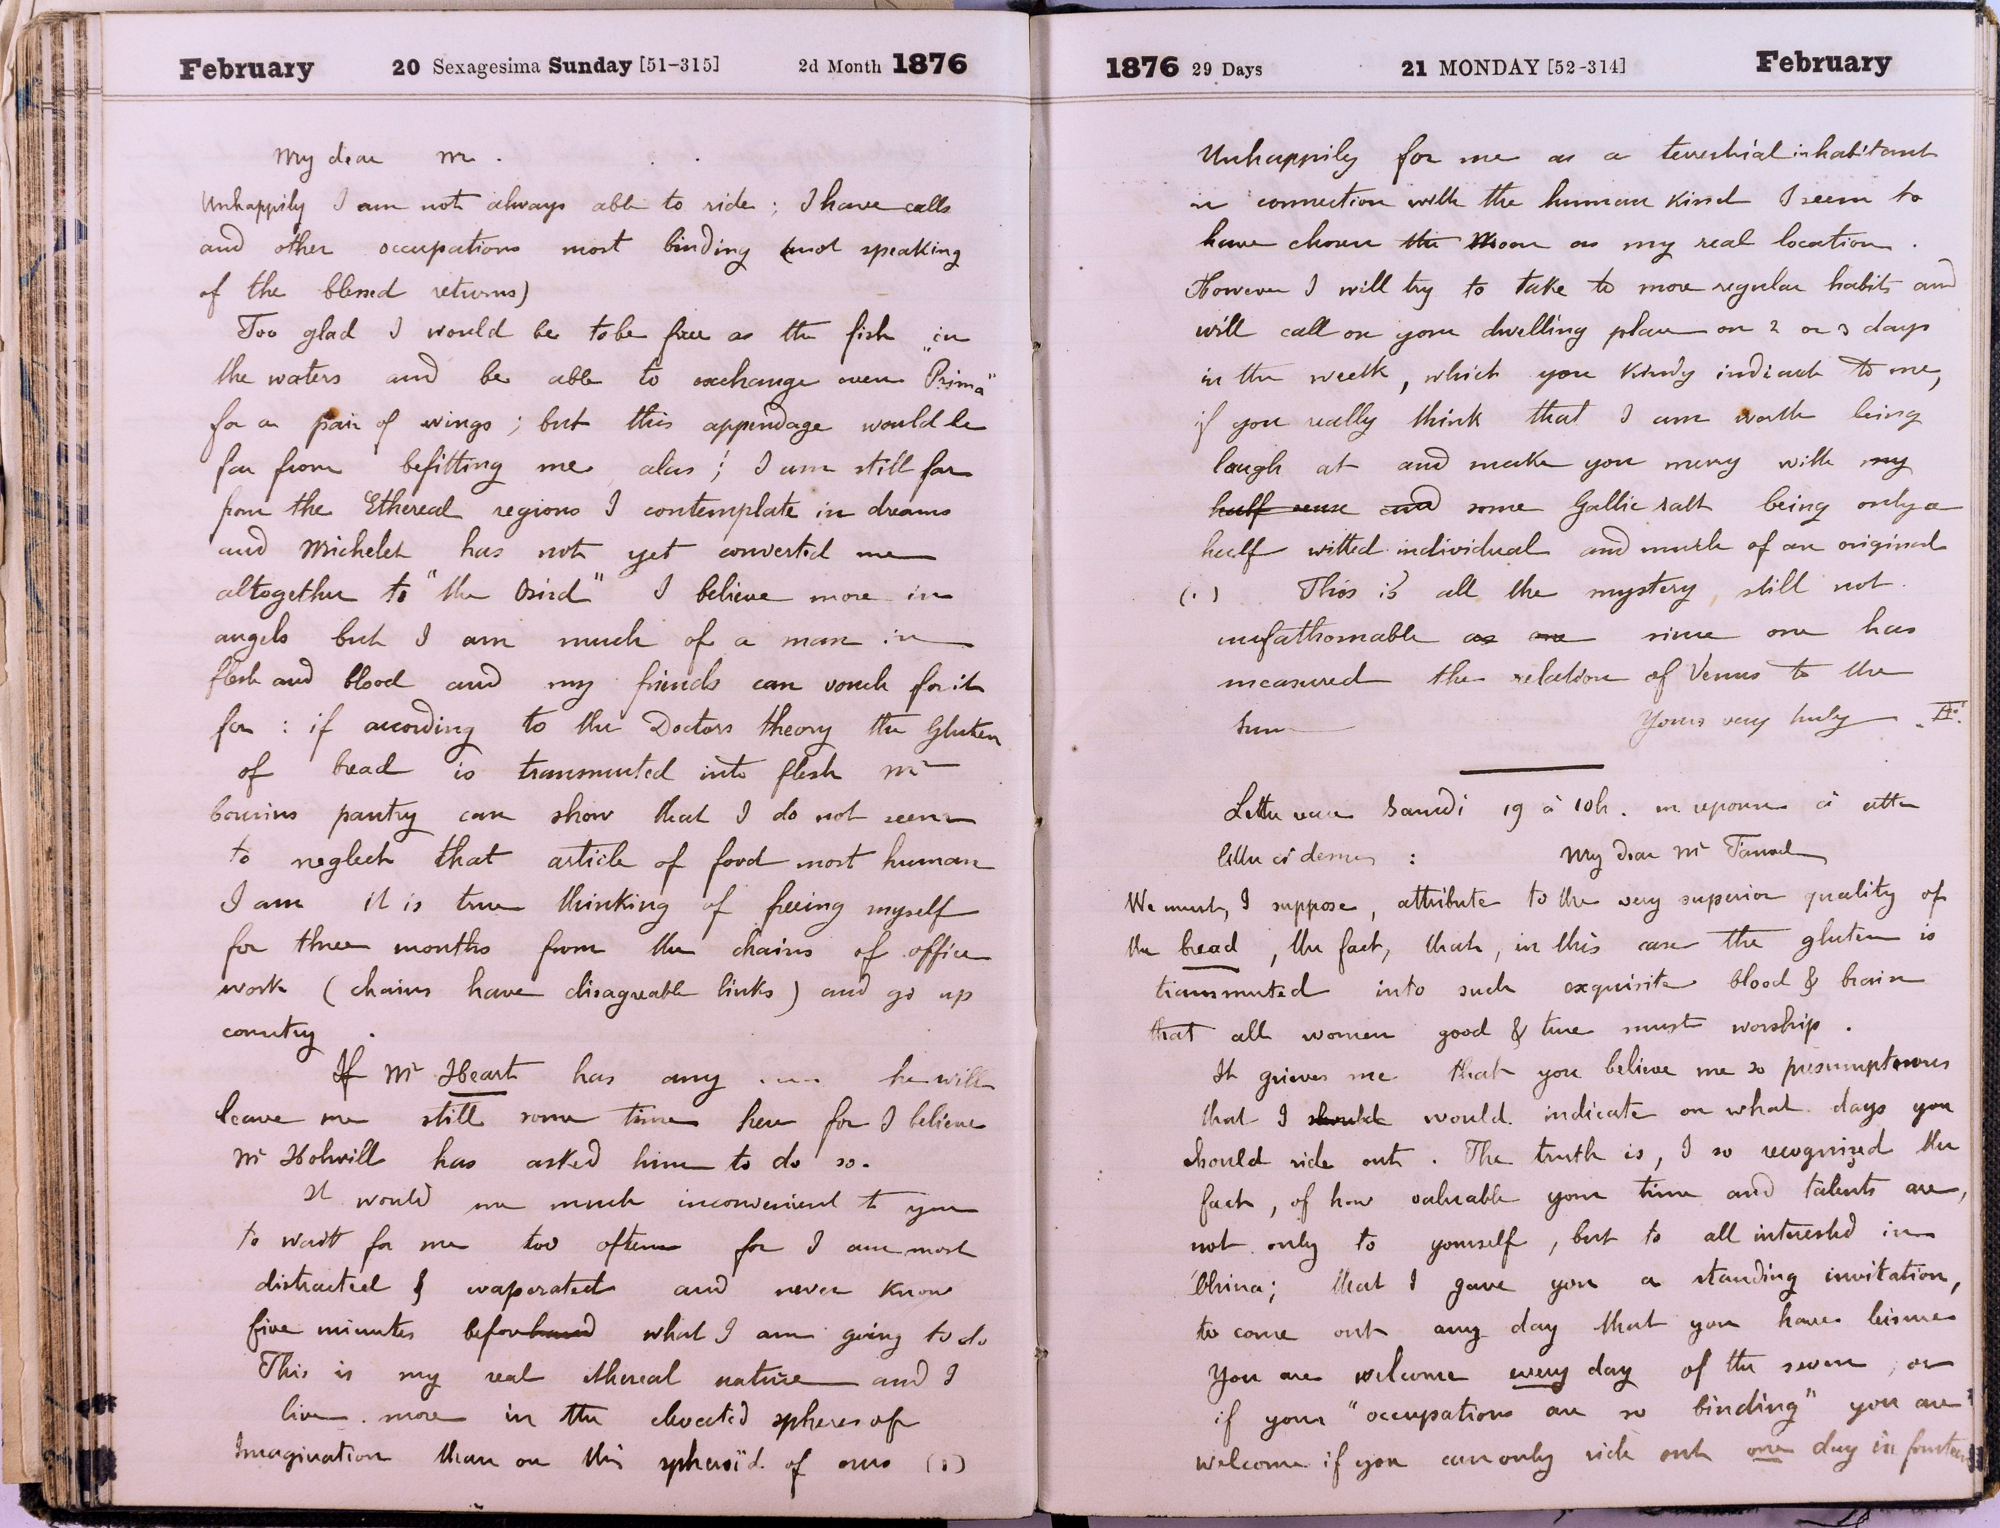 February 20 Sexagesima Sunday [51-315] 2d Month 1876
My dear Mr.
Unhappily I am not always able to ride; I have calls
and other occupations most binding (not speaking
of the blessed returns)
Too glad I would be to be free as the fish in
the waters and be able to exchange even "Prima"
for a pair of wings; but this appendage would be
far from befitting me alas; I am still far
from the Ethereal regions I contemplate in dreams
and Michelet has not yet converted me
altogether to "the Bird" I believe more in
angels but I am much of a man in
flesh and blood and my friends can vouch for it
for: if according to the Doctors theory the Gluten
of bread is transmuted into flesh Mr
pantry can show that I do not seem
to neglect that article of food most human
I am it is true thinking of freeing myself
for three months from the chains of office
work (chains have disagreable links) and go up
country.
If Mr Heart has any .... he will
leave me still some time here for I believe
Mr Holwill has asked him to do so.
It would me much inconvenient to you
to wait for me too often for I am most
distracted & evaporated and never know
five minutes beforehand what I am going to do
This is my real ethereal nature and I
live more in the elevated spheres of
Imagination than on this spheroïd of ours (1)
1876 29 Days 21 MONDAY [52-314] February
Unhappily for me as a terrestrial inhabitant
in connection with the human Kind I seem to
have chosen the Moon as my real location.
However I will try to take to more regular habits and
will call on your dwelling place on 2 or 3 days
in the week, which you Kindly indicate to me,
if you really think that I am worth being
laugh at and make you merry with my
half sense and some Gallic salt being only a
half witted individual and much of an original
(1) This is all the mystery, still not
unfathomable as one since one has
measured the relation of Venus to the
Sun Yours very truly
Samedi 19 à 10h. en reponse à cette
: My dear Mr
We must, I suppose, attribute to the very superior quality of
the bread, the fact, that, in this case the gluten is
transmuted into such exquisite blood & brain
that all women good & true must worship.
It grieves me that you believe me so presumptuous
that I should would indicate on what days you
should ride out. The truth is, I so recognized the
fact, of how valuable your time and talents are,
not only to yourself, but to all interested in
China; that I gave you a standing invitation,
to come out any day that you have leisure
You are welcome every day of the seven, or
if your "occupations are so binding" you are
welcome if you can only ride out one day in fourteen